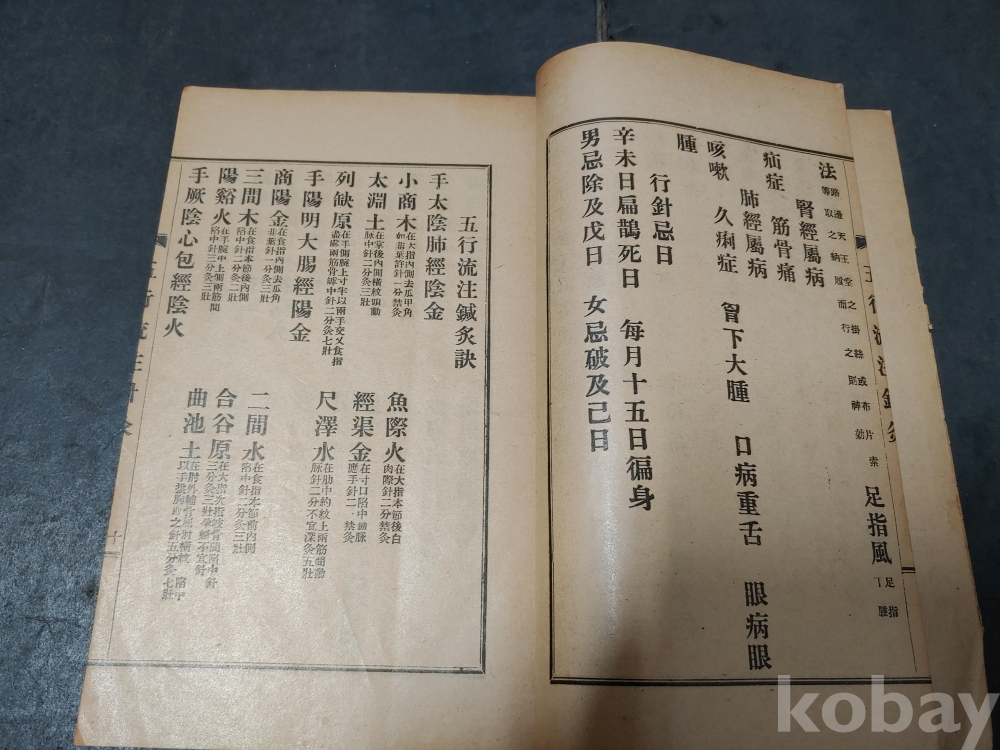 法
路邊天王堂之掛絲或布片索
等取之納履而行之則神効
足指風
足指
丫腫
腎經屬病
疝症　筋骨痛
肺經屬病
咳嗽　久痢症　胷下大腫　口病重舌　眼病眼
腫
行針忌日
辛未日扁鵲死日　每月十五日徧身
男忌除及戊日　女忌破及己日
五行流注鍼灸訣
手太陰肺經陰金
小商木
在大指內側去瓜甲角
如韭葉許針一分禁灸
魚際火
在大指本節後白
肉際針二分禁灸
太淵土
在掌後內側橫紋頭動
脉中針二分灸三壯
經渠金
在寸口陷中動脉
應手針二分禁灸
列缺原
在手側腕上寸半以兩手交叉食指
盡處兩筋骨罅中針二分灸七壯
尺澤水
在肋中約紋上兩筋間動
脉針二分不宜深灸五壯
手陽明大腸經陽金
商陽金
在食指內側去瓜角
韭葉針一分灸三壯
二間水
在食指本節前內側
陷中針二分灸三壯
三間木
在食指本節後內側
陷中針二分灸二壯
合谷原
在大指次指歧骨間陷中針
三分灸三壯孕婦不宜針
陽谿火
在手腕中上側兩筋間
陷中針三分灸三壯
曲池土
在肘外輔骨屈肘橫紋陷中
以手拱胸取之針五分灸七壯
手厥陰心包經陰火
kobay